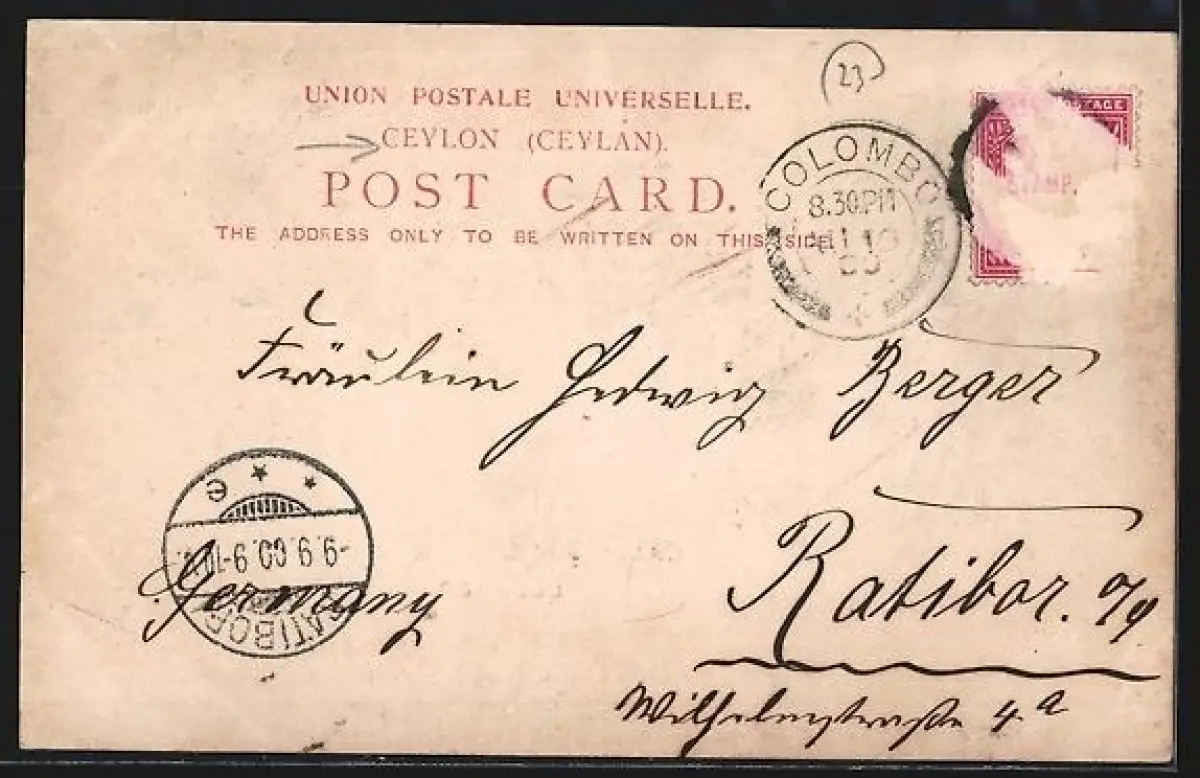 23
UNION POSTALE UNIVERSELLE.
CEYLON (CEYLAN).
POST CARD.
THE ADDRESS ONLY TO BE WRITTEN ON THIS SIDE.
COLOMBO
8.30.PM
STAMP.
Fräulein Hedwig Berger
Ratibor. o/s
Wilhelmstraße 4a
Germany
RATIBOR
9.9.00.9-10
e